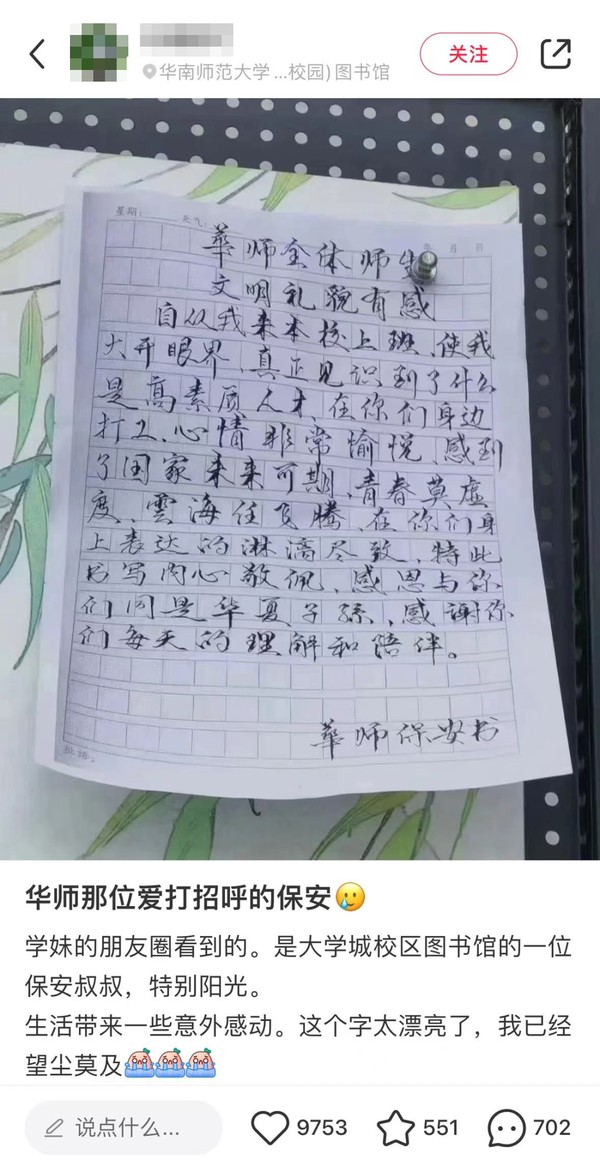 华南师范大学 ...校园) 图书馆
关注
星期:
天气:
年 月 日
華师全体师生
文明礼貌有感
自从我来本校上班、使我
大开眼界、真正见识到了什么
是高素质人才、在你们身边
打工、心情非常愉悦、感到
了国家未来可期、青春莫虚
度、雲海任飞腾、在你们身
上表达的淋漓尽致,特此
书写内心敬佩、感恩与你
们同是华夏子孫,感谢你
们每天的理解和陪伴。
華师保安书
华师那位爱打招呼的保安🥲
学妹的朋友圈看到的。是大学城校区图书馆的一位
保安叔叔,特别阳光。
生活带来一些意外感动。这个字太漂亮了,我已经
望尘莫及
说点什么...
9753
551
702